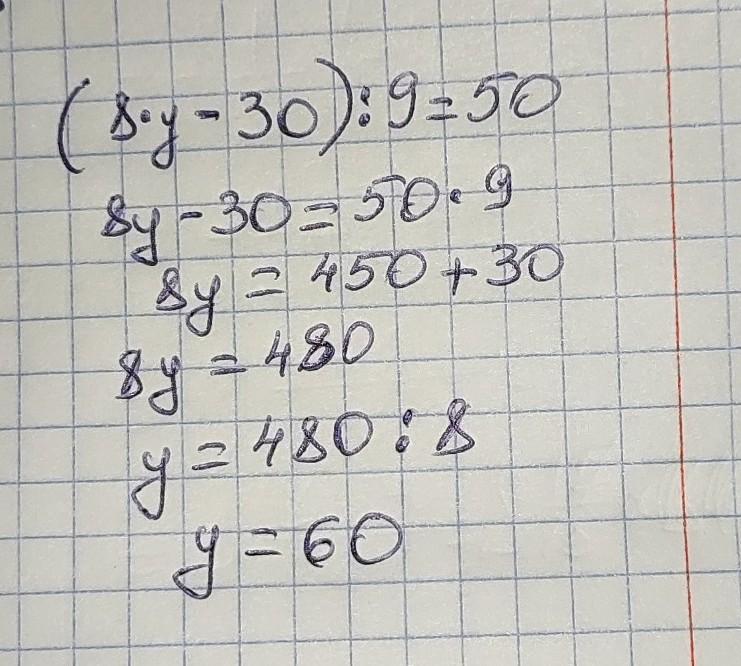 (8·y-30):9=50
8y-30=50·9
8y=450+30
8y=480
y=480:8
y=60